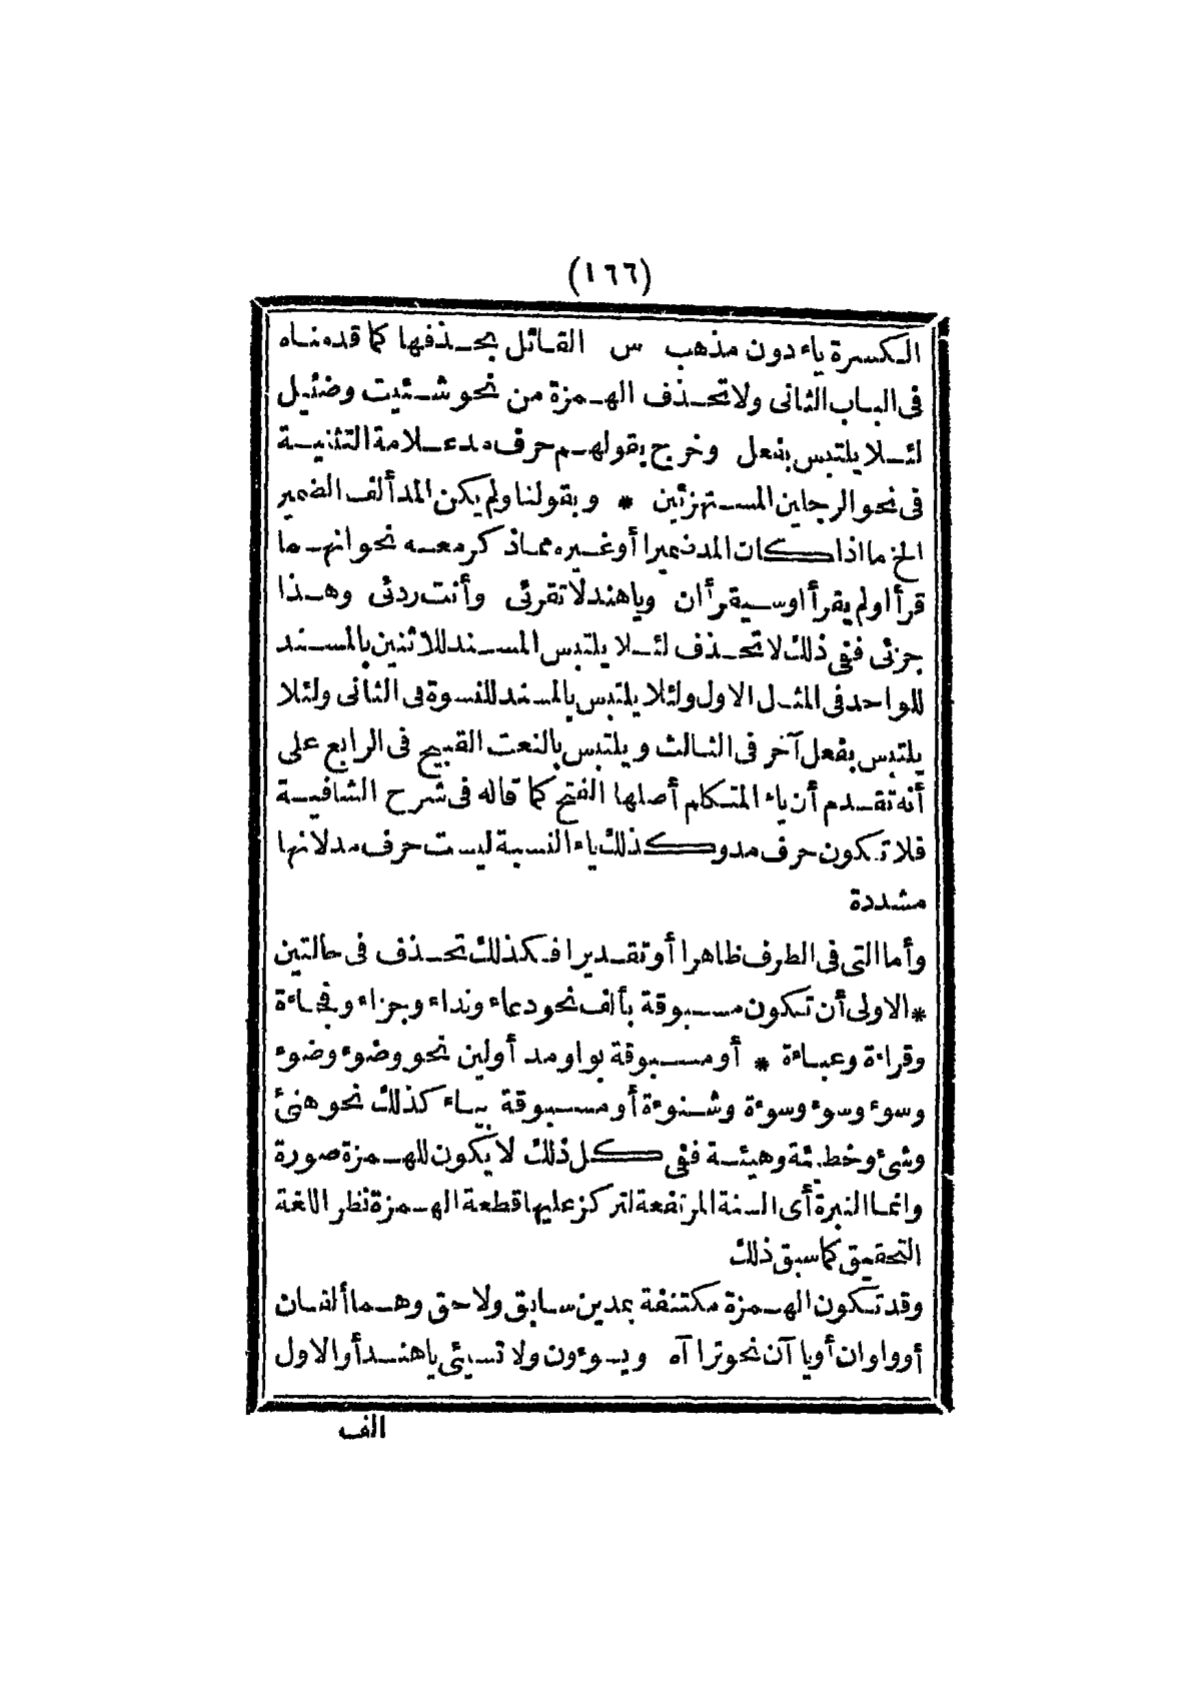 (١٦٦)
الكسرة ياء دون مذهب س القائل بحذفها كما قدمناه
فى الباب الثانى ولا تحذف الهمزة من نحو شئيت وضئيل
لئلا يلتبس بفعل وخرج بقولهم حرف مد علامة التثنية
فى نحو الرجلين المستهزئين * وبقولنا ولم يكن المد ألف الضمير
الخ ما اذا كان المد ضميرا أو غيره مماذكر معه نحو انهما
قرأا ولم يقرأا وسيقرأان وياهند لا تقرئى وأنت ردئى وهذا
جزئى ففى ذلك لا تحذف لئلا يلتبس المسند للاثنين بالمسند
للواحد فى المثل الاول ولئلا يلتبس بالمسند للنسوة فى الثانى ولئلا
يلتبس بفعل آخر فى الثالث ويلتبس بالنعت القبيح فى الرابع على
أنه تقدم أن ياء المتكلم أصلها الفتح كما قاله فى شرح الشافية
فلا تكون حرف مد وكذلك ياء النسبة ليست حرف مد لانها
مشددة
وأما التى فى الطرف ظاهرا أو تقديرا فكذلك تحذف فى حالتين
* الاولى أن تكون مسبوقة بألف نحو دعاء ونداء وجزاء وفجاءة
وقراءة وعباءة * أو مسبوقة بواو مد أولين نحو وضوء وضوء
وسوء وسوء وسوءة وشنوءة أو مسبوقة بياء كذلك نحو هنئ
وشئ وخطئة وهيئة ففى كل ذلك لا يكون للهمزة صورة
وانما النبرة أى السنة المرتفعة لتركز عليها قطعة الهمزة نظرا للغة
التحقيق كما سبق ذلك
وقد تكون الهمزة مكتنفة بمدين سابق ولاحق وهما ألفان
أو واوان أو يا آن نحو ترا آه ويسوءون ولا تسيئى ياهند أو الاول
الف